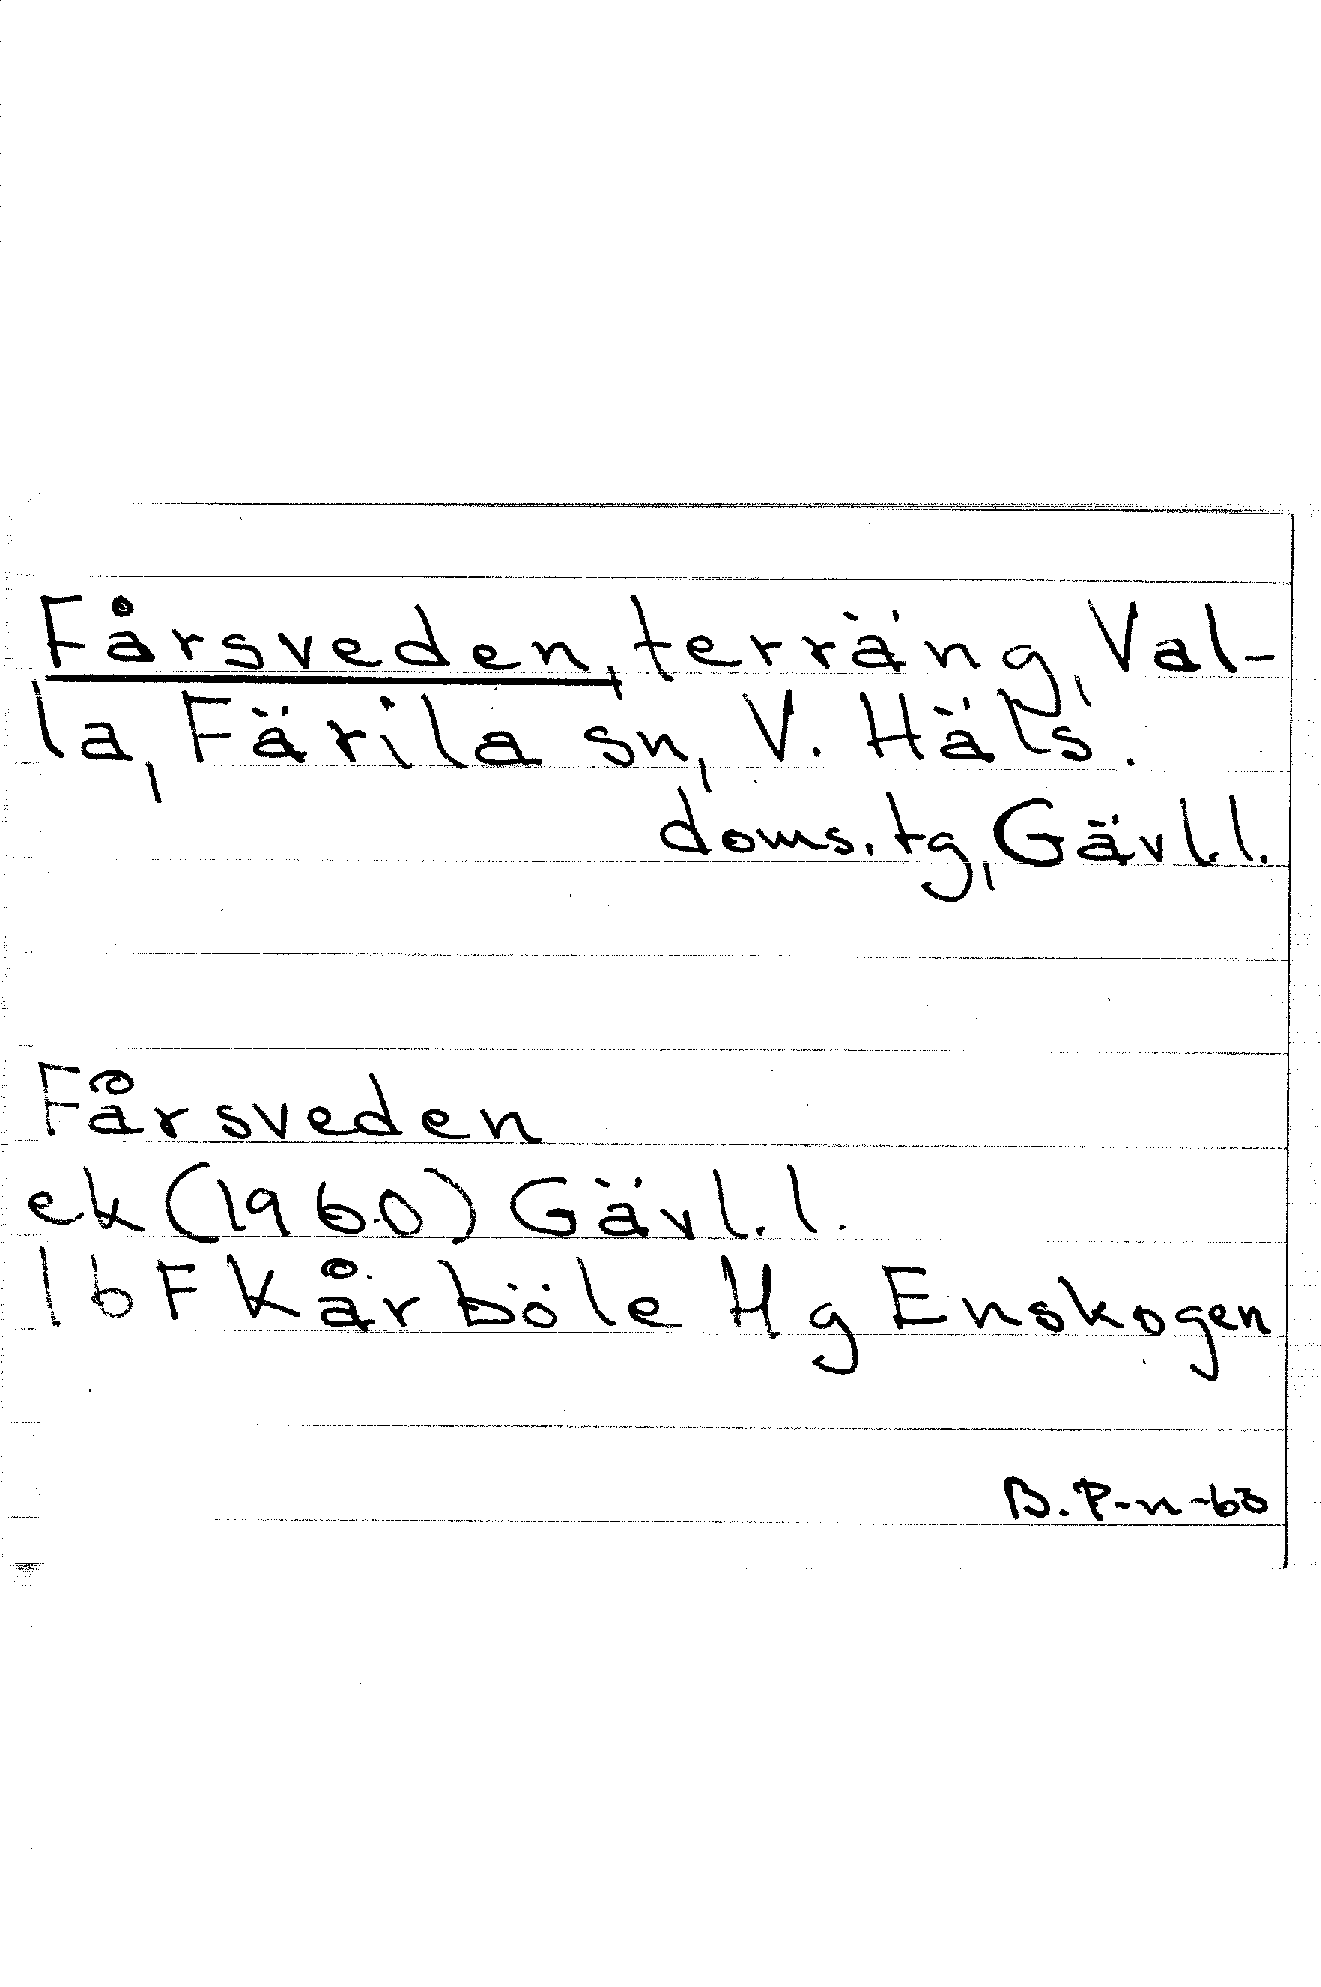 Fårsveden, terräng, Val-
la, Färila sn, V. Häls.
doms. tg, Gävl.l.
Fårsveden
ek (1960) Gävl.l.
16 F Kårböle Hg Enskogen
B. P-n-63